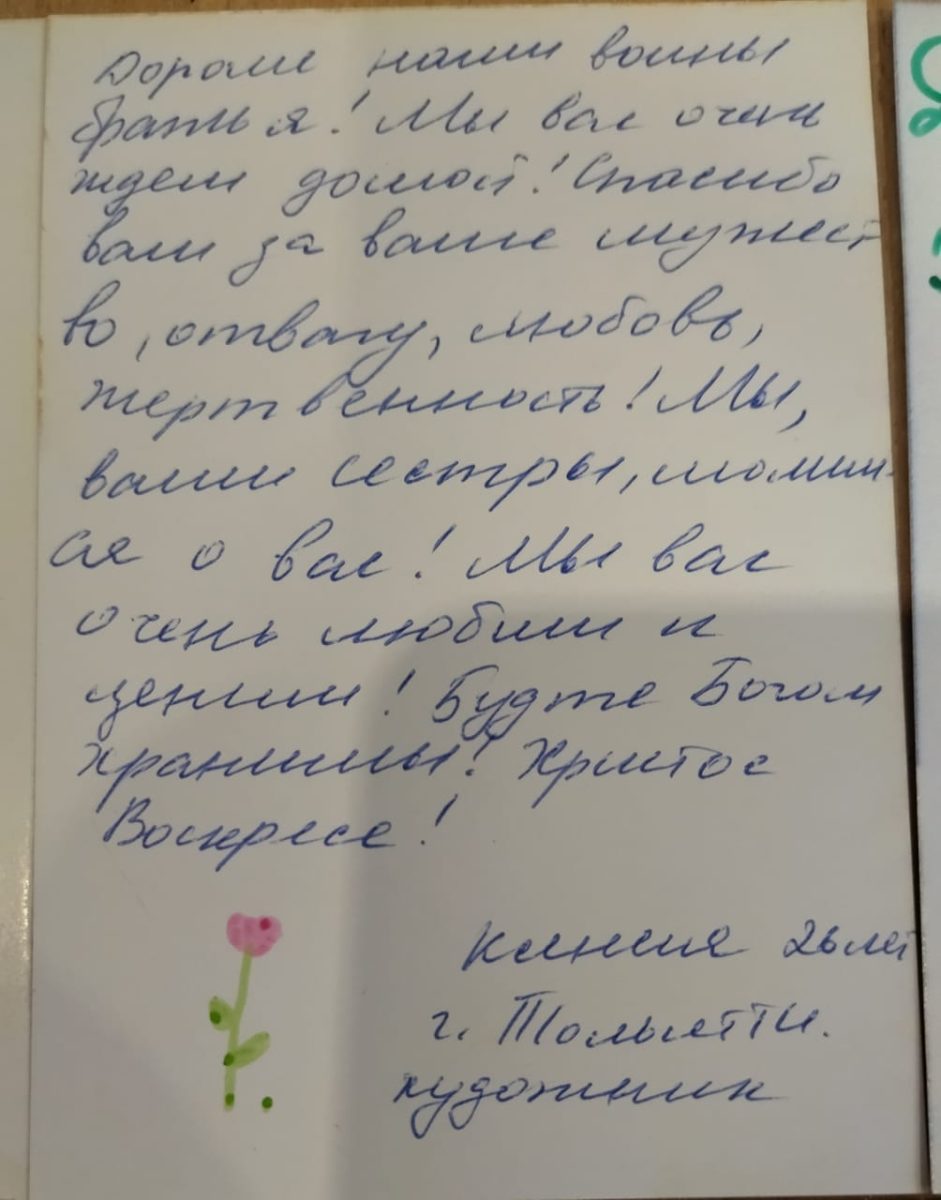 Дорогие наши воины
братья! Мы вас очень
ждем домой! Спасибо
вам за ваше мужест
во, отвагу, любовь,
жертвенность! Мы,
ваши сестры, молим-
ся о вас! Мы вас
очень любим и
ценим! Будте Богом
хранимы! Христос
Воскресе!
Ксения 26 лет
г. Тольятти.
художник